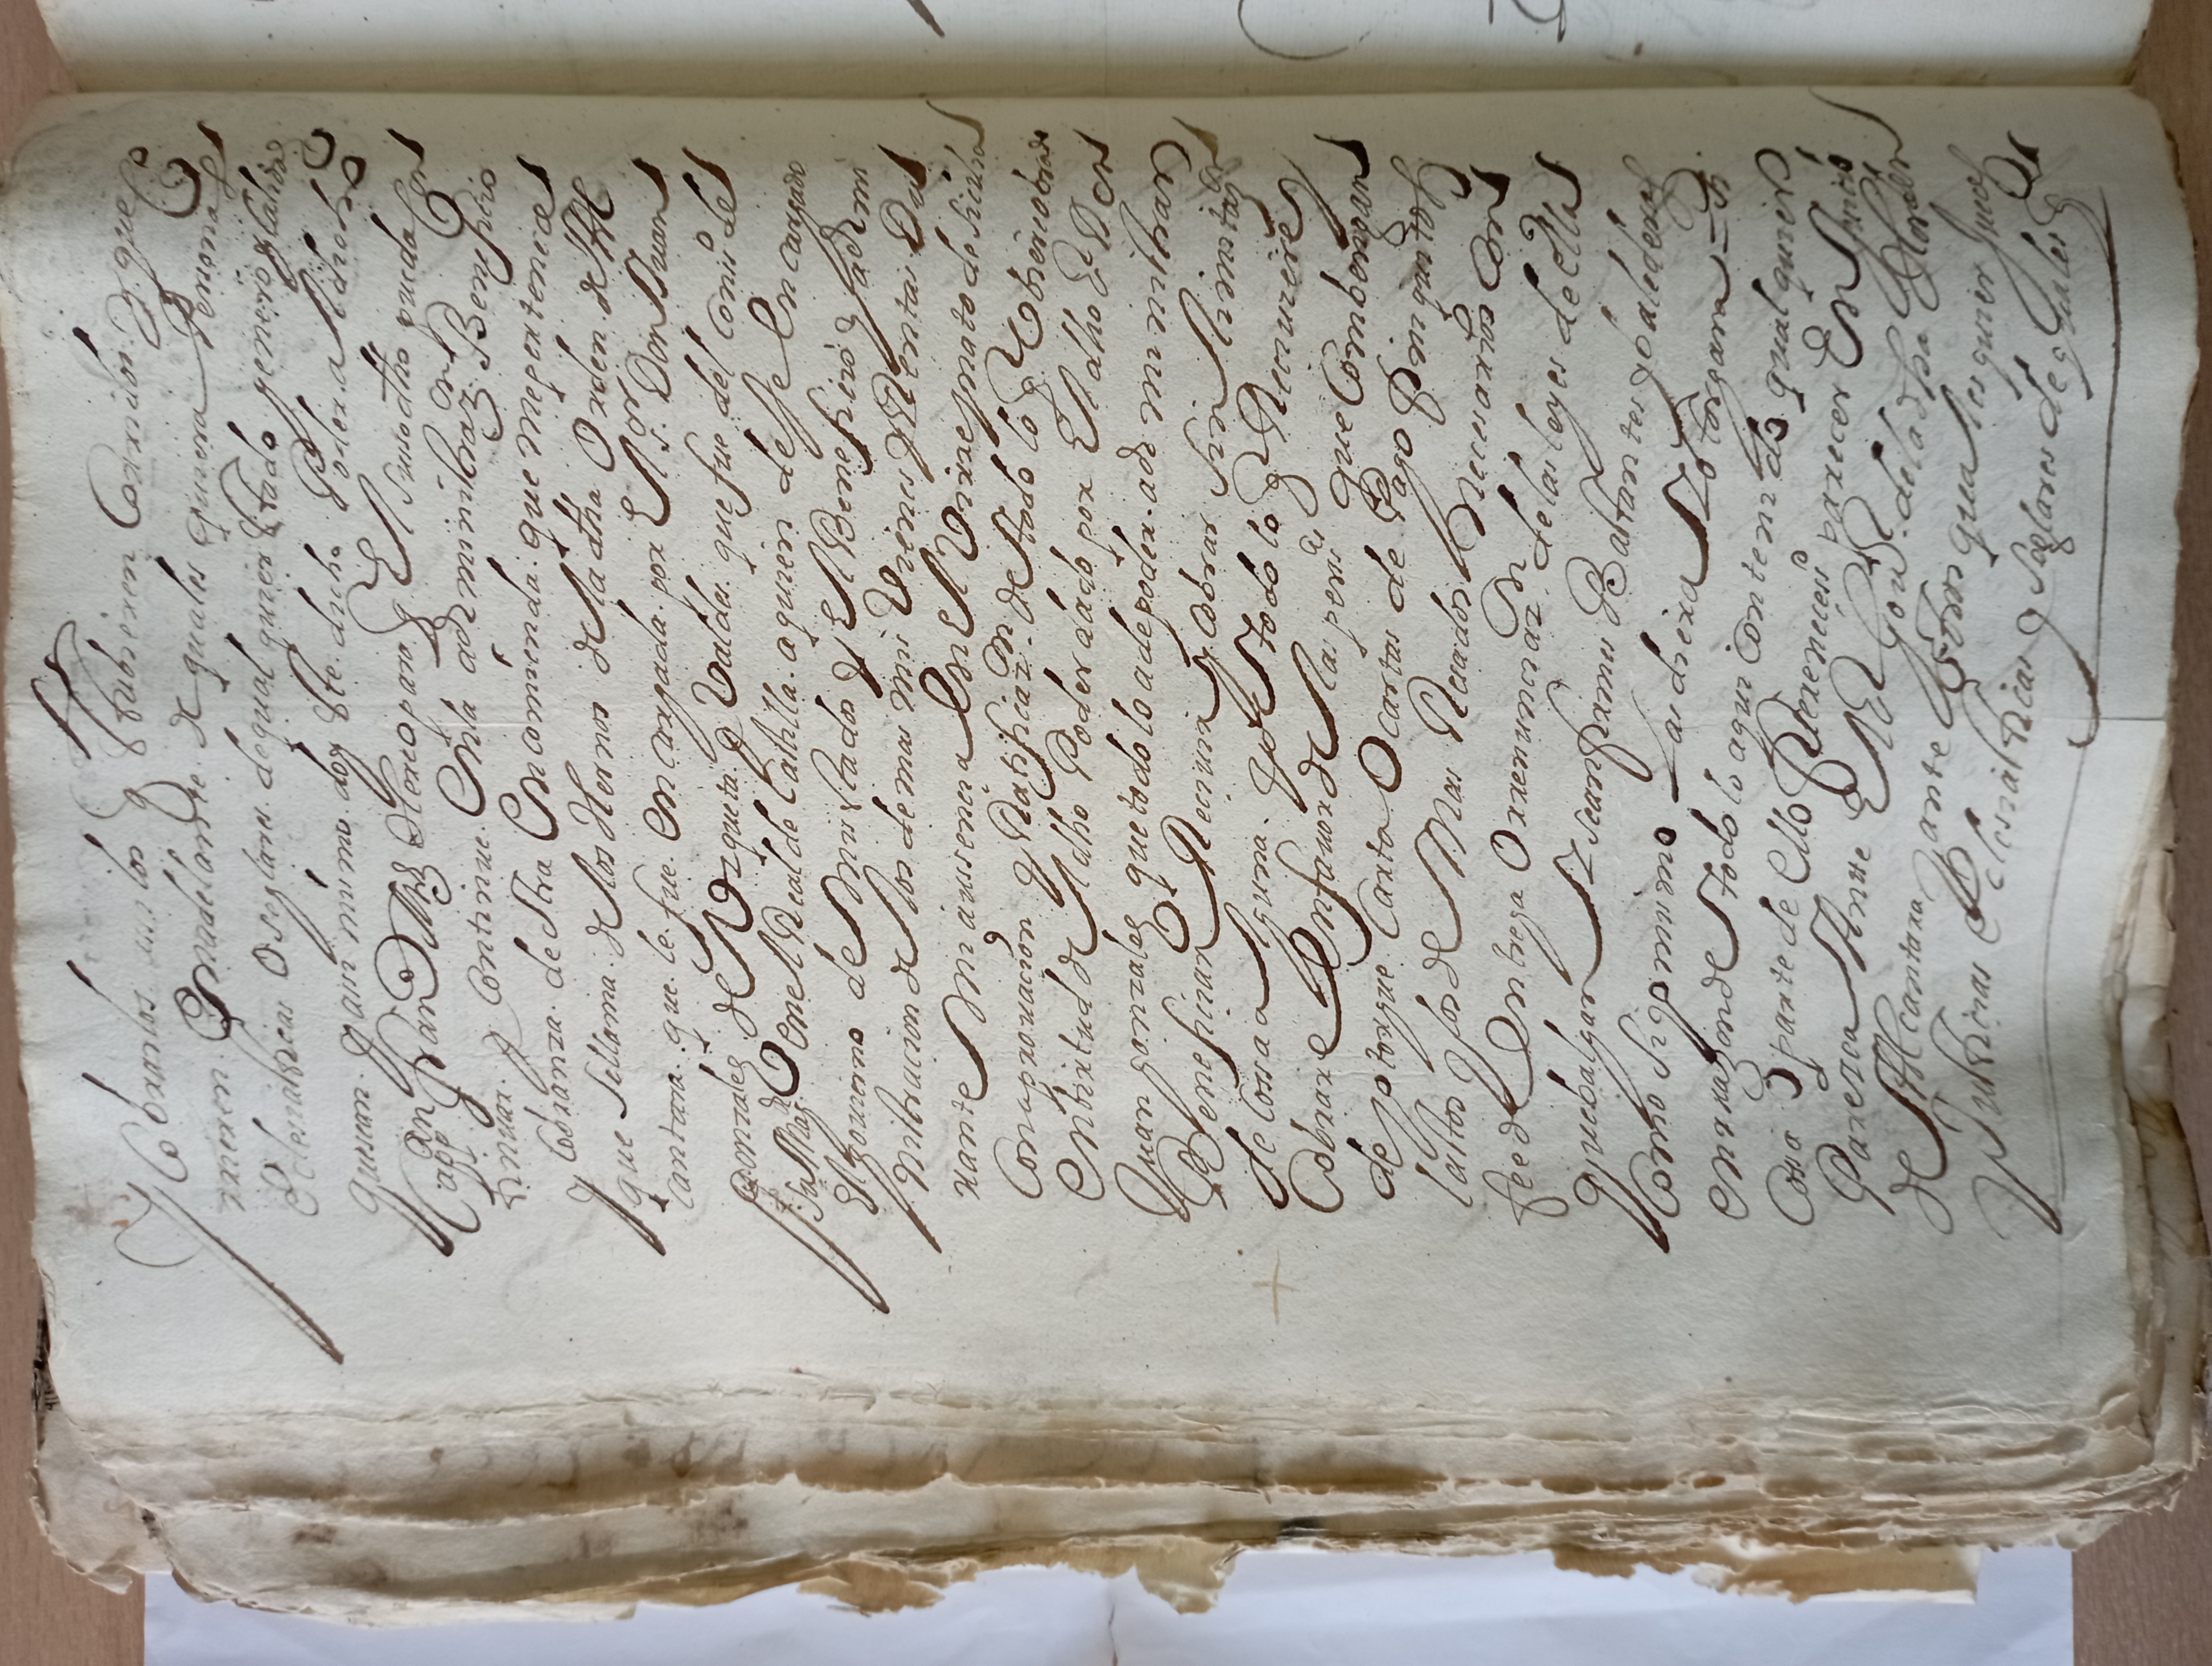 y Cobrarlos assi los q estubieren Corridos. y. que Co
rrieren. Enadelante. de quales quiera Personas
Eclesiasticas O seglares. dequal quier Estado genero y Calidad
quesean. y assi mismo. doy Este. dicho Poder. a el dicho
Cappan franco Mrz para q. El Susso dho pueda Con
tinuar. y Continue. Enla administrazon. Beneficio
y Cobranza. de otra Encomienda. que mepertenece
que sellama. de los Hernos de la dha Orden. de Al
cantara. que. le. fue. encargada. por El sor. Don Juan
gonzalez de Uzqueta. y Valdes. que fue del Conso de
su Magd en el Real de Castilla. aquien dexe Encargado
El govierno de mis estados y El Beneficio y admi
nistracion de los demas mis Vienes y Rentas Du
rante mi aussencia En El Virreynato de Sicilia
Con aprovacion y Ratificazn. de todo lo q. Ubiere obrado
Enbirtud de el dho Poder dado por El dho Sr Don
Juan gonzalez que todo lo a de poder. administrar
Beneficiar Recivir y Cobrar sin limitazn
de Cossa alguna. y de todo lo q Reciviere y
Cobrare En favor de las persas que Combengan
de y otorgue Carta O cartas de Pago finiquitos
lastos y los de mas Recados Necesarios Con
fee de Entrega O rrenunciazn. de las leyes de ella
que balgan y sean firmes Bastantes y baledera
Como si yo mismo Las diera y otorgara = si
en rrazon de todo lo aqui Contenido qualquier
Cossa o parte de ello fuere necesso parecer En Juicio
Parezca Ante El Sr Govr. de la dha Horden
de Alcantara y ante otros qualesquier Jueces
y Justicias Eclesiasticas y Seglares de quales q